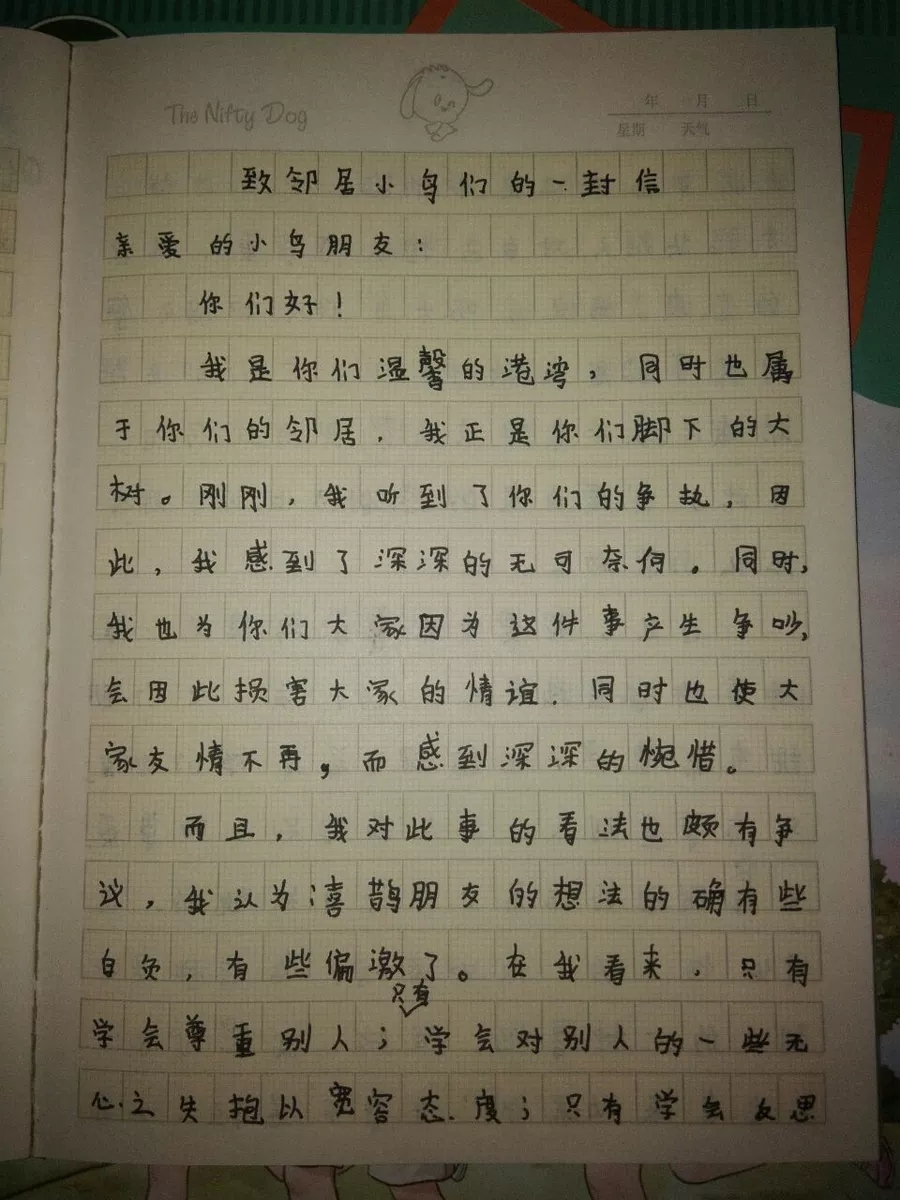 The Nifty Dog
年 月 日
星期 天气
致邻居小鸟们的一封信
亲爱的小鸟朋友：
你们好！
我是你们温馨的港湾，同时也属
于你们的邻居，我正是你们脚下的大
树。刚刚，我听到了你们的争执，因
此，我感到了深深的无可奈何。同时，
我也为你们大家因为这件事产生争吵，
会因此损害大家的情谊．同时也使大
家友情不再，而感到深深的惋惜。
而且，我对此事的看法也颇有争
议，我认为喜鹊朋友的想法的确有些
自负，有些偏激了。在我看来，只有
学会尊重别人；只有学会对别人的一些无
心之失抱以宽容态度；只有学会反思